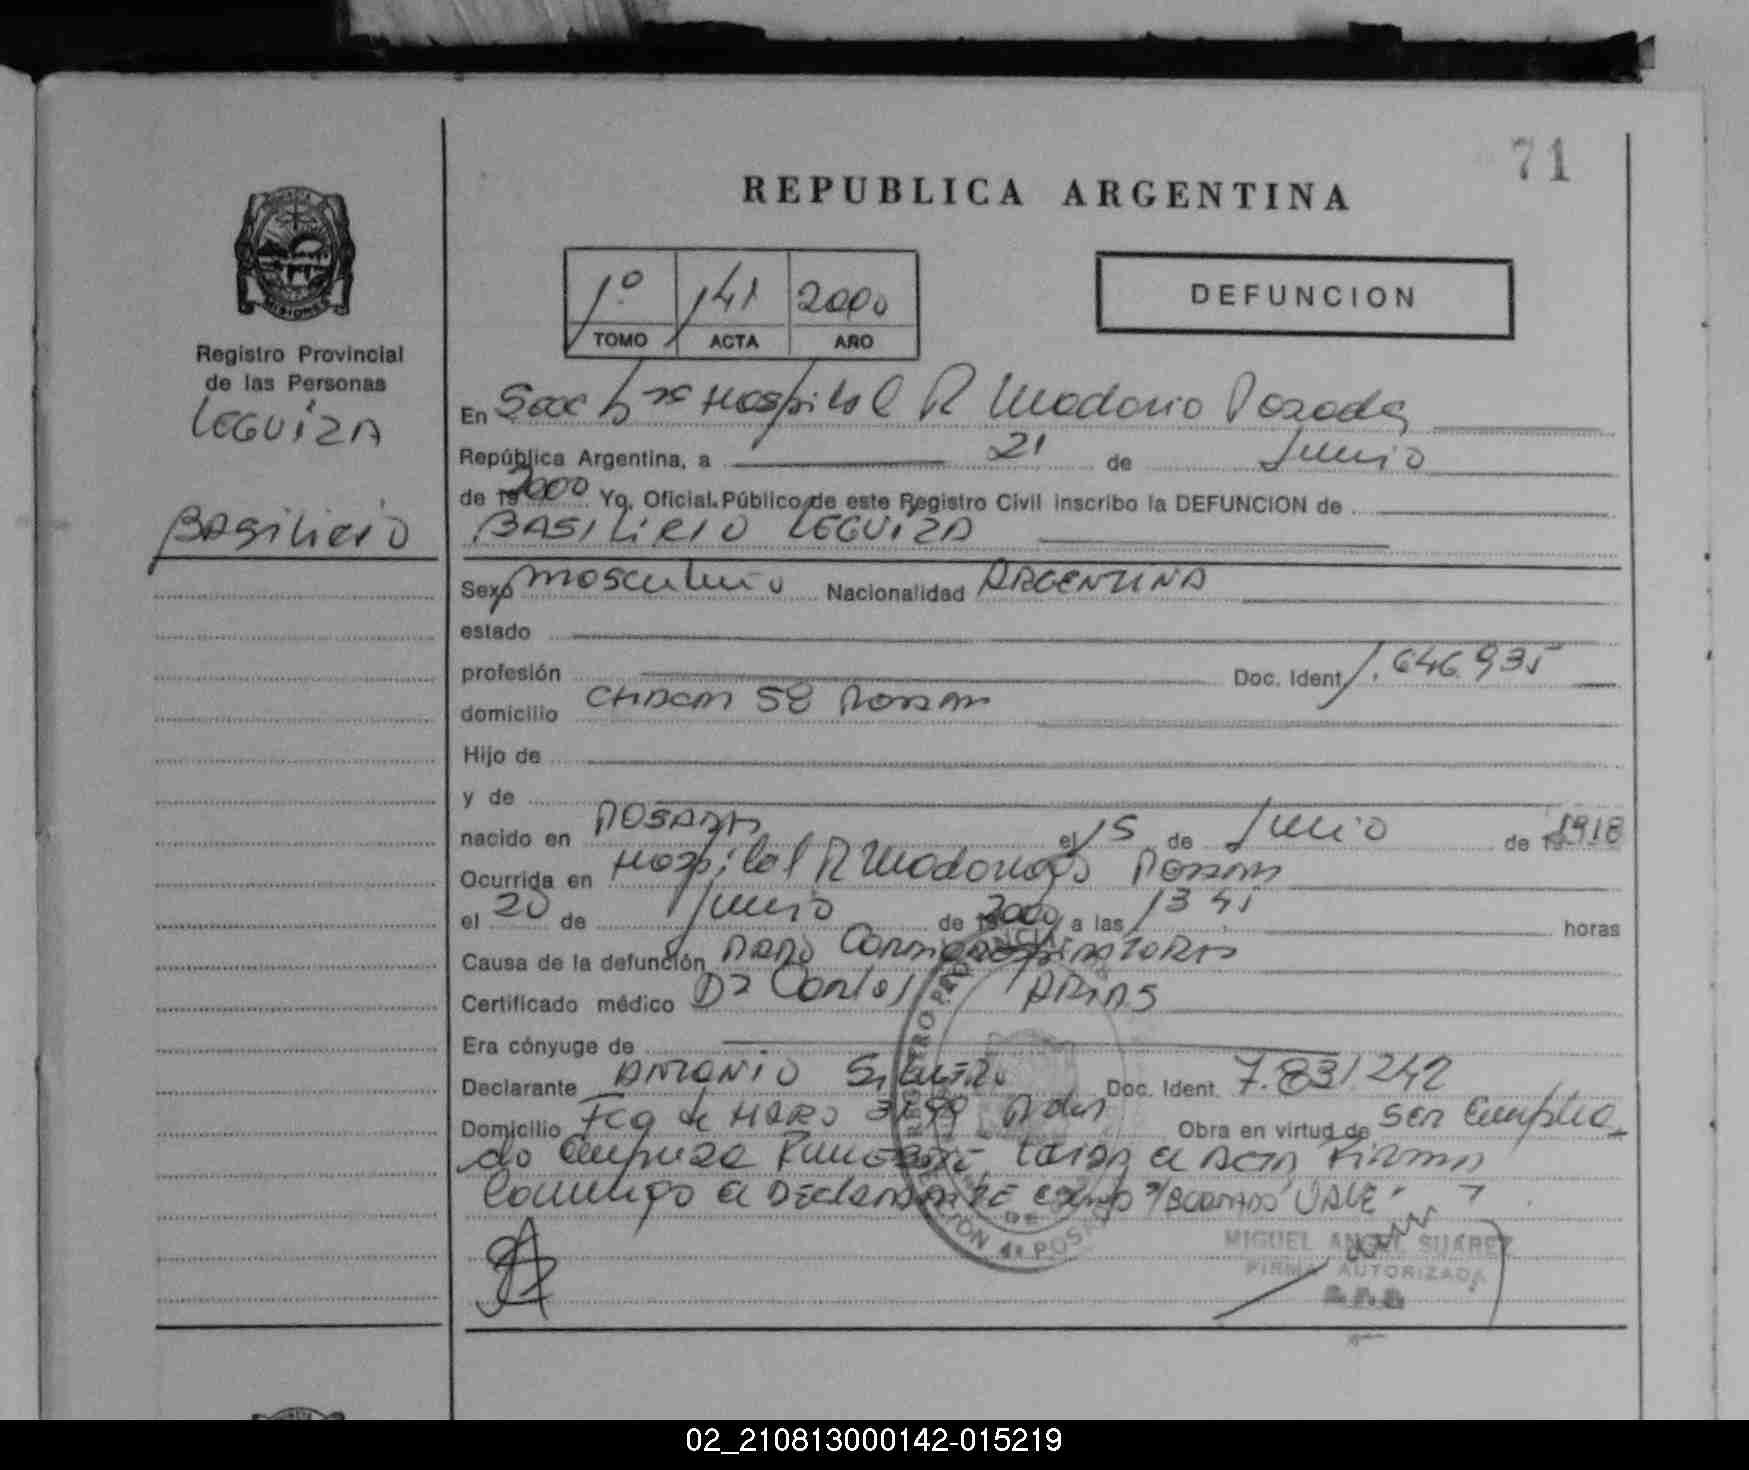 71
REPUBLICA ARGENTINA
1º 141 2000
TOMO ACTA AÑO
DEFUNCION
MISIONES
Registro Provincial
de las Personas
LEGUIZA
BASiLiCiO
En Secc Hospital R Madariaga Posadas
República Argentina, a 21 de Junio
de 2000 Yo, Oficial Público de este Registro Civil inscribo la DEFUNCION de
BASILICIO LEGUIZA
Sexo masculino Nacionalidad ARGENTINA
estado
profesión Doc. Ident. 1.646.935
domicilio CHACRA 58 POSADAS
Hijo de
y de
nacido en POSADAS el 15 de Junio de 1918
Ocurrida en Hospital R Madariaga POSADAS
el 20 de Junio de 2000 a las 13 horas
Causa de la defunción PARO CARDIORESPIRATORIO
Certificado médico Dr Carlos ARIAS
Era cónyuge de
Declarante ANTONIO Doc. Ident. 7.831242
Domicilio Fco de HARO Pdas Obra en virtud de ser emplea
do empresa FUNEBRE. Leida el ACTA FIRMA
conmigo el DECLARANTE "VALE"
REGISTRO PROVINCIAL DE
4ª POSADAS
MIGUEL ANGEL SUAREZ
FIRMA AUTORIZADA
02_210813000142-015219